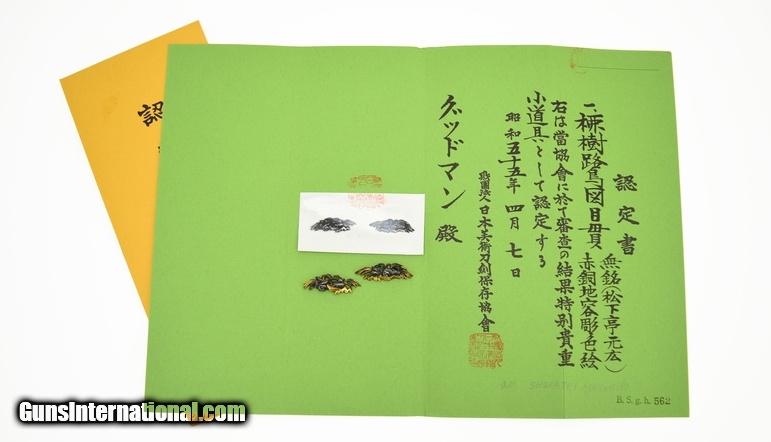 認定書
一、樹鷺図目貫
無銘(松下亭元広)
赤銅地容彫色絵
右は當協會に於て審査の結果特別貴重
小道具として認定する
昭和五十五年四月七日
財團法人日本美術刀剣保存協會
グッドマン殿
認
B. S. g. h. 562
GunsInternational.com